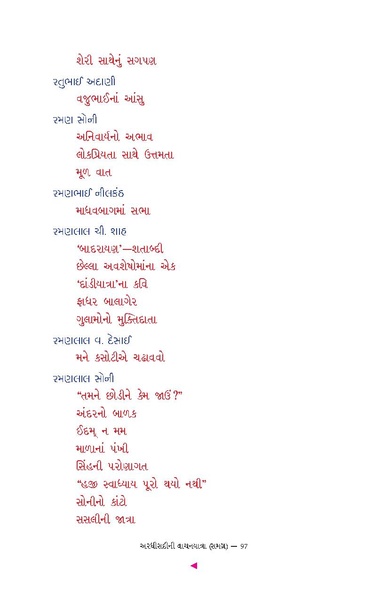 શેરી સાથેનું સગપણ
રતુભાઈ અદાણી
વજુભાઈનાં આંસુ
રમણ સોની
અનિવાર્યનો અભાવ
લોકપ્રિયતા સાથે ઉત્તમતા
મૂળ વાત
રમણભાઈ નીલકંઠ
માધવબાગમાં સભા
રમણલાલ ચી. શાહ
‘બાદરાયણ’—શતાબ્દી
છેલ્લા અવશેષોમાંના એક
‘દાંડીયાત્રા’ના કવિ
ફાધર બાલાગેર
ગુલામોનો મુક્તિદાતા
રમણલાલ વ. દેસાઈ
મને કસોટીએ ચઢાવવો
રમણલાલ સોની
“તમને છોડીને કેમ જાઉં ?”
અંદરનો બાળક
ઈદમ્ ન મમ
માળાનાં પંખી
સિંહની પરોણાગત
“હજી સ્વાધ્યાય પૂરો થયો નથી”
સોનીનો કાંટો
સસલીની જાત્રા
અરધીસદીની વાચનયાત્રા (સમગ્ર) — 97